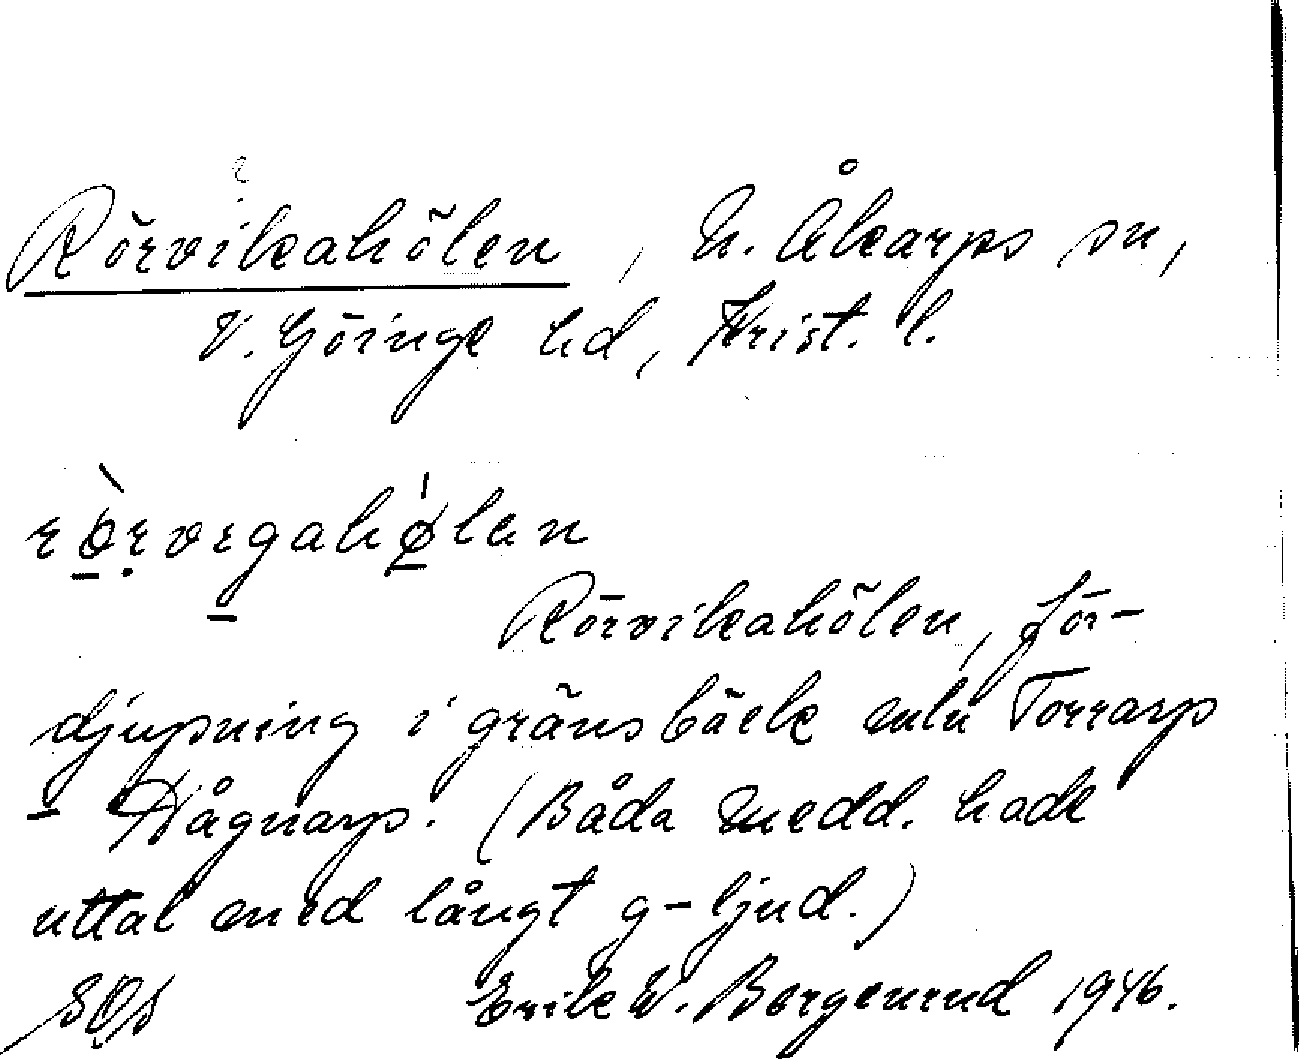 Rörvikahölen, N. Åkarps sn,
V. Göinge hd, Krist. l.
Rörvikahölen, för-
djupning i gränsbäck mln Torrarp
- Hågnarp. (Båda medd. hade
uttal med långt g-ljud.)
Erik W. Borgenrud 1946.